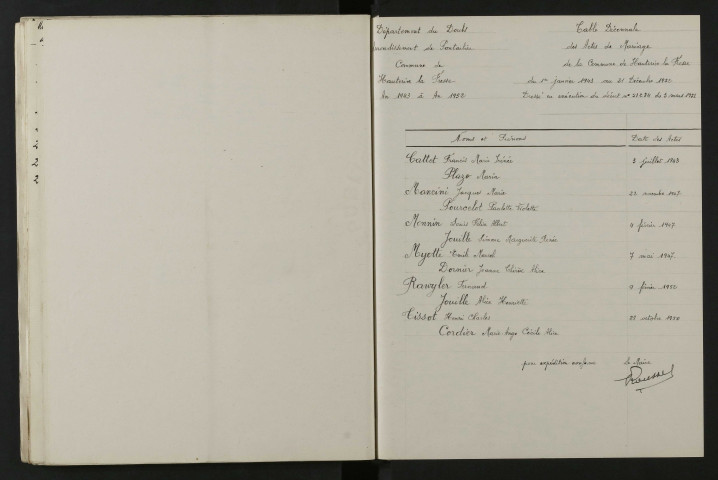 Département du Doubs
Arrondissement de Pontarlier
Commune de
Hauterive la Fresse
An 1943 à An 1952
Table Décennale
des Actes de Mariage
de la Commune de Hauterive la Fresse
du 1er janvier 1943 au 31 Décembre 1952
Dressé en exécution du décret n° du 2 mars
Noms et Prénoms Date des Actes
Callot Francis Marie 3 juillet 1943
Plazo Maria
Mancini Jacques Marie 22 novembre 1947
Pourcelot Paulette Violette
Monnin Denis Félix Albert 4 février 1947
Jouille Simone Marguerite Marie
Myotte Emile Marcel 7 mai 1947
Dornier Jeanne Alice
Rawyler Fernand 9 février 1952
Jouille Alice Henriette
Tissot Henri Charles 28 octobre 1950
Cordier Marie Ange Cécile Alice
pour expédition conforme Le Maire